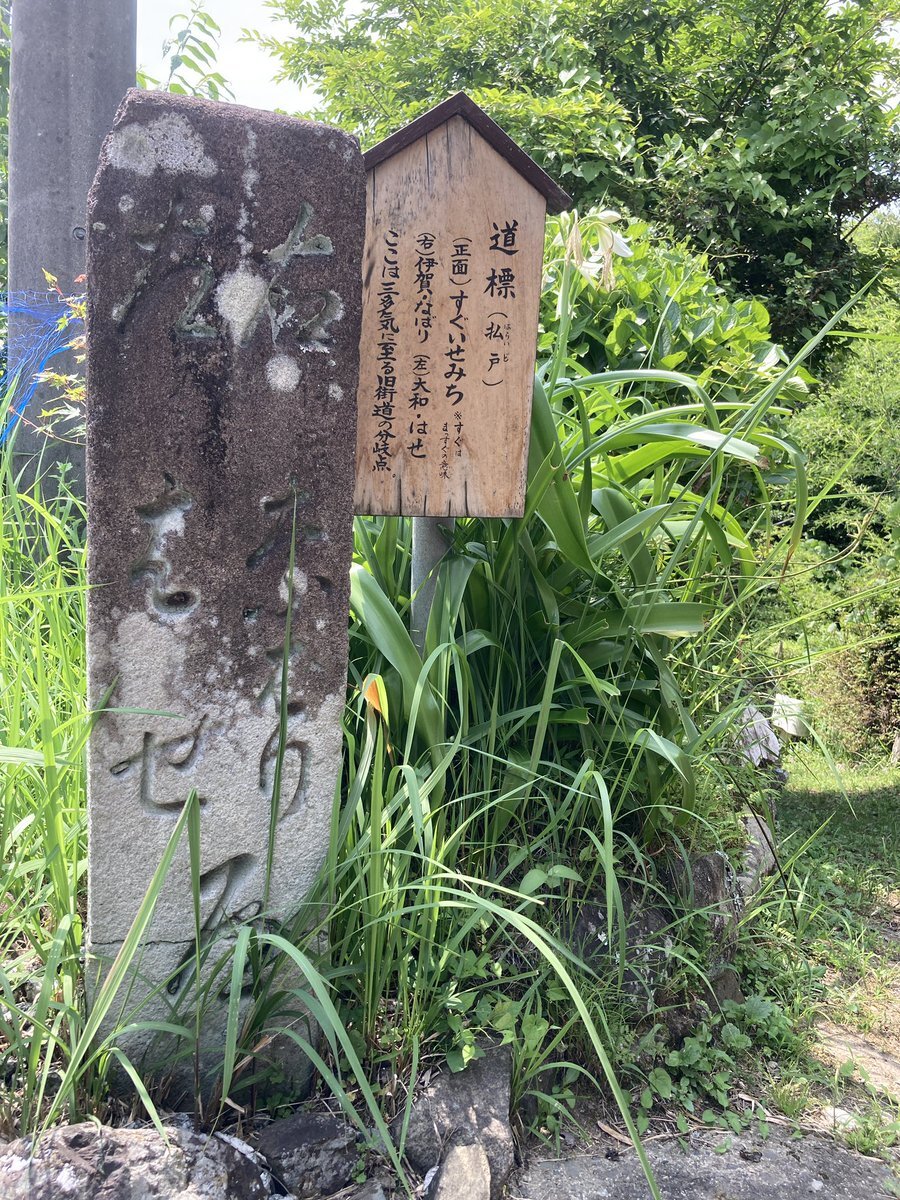 道標（払戸）
（正面）すぐいせみち ※すぐは
まっすぐの意味
（右）伊賀・なばり （左）大和・はせ
ここは三多気に至る旧街道の分岐点。
なはり
はせ
道